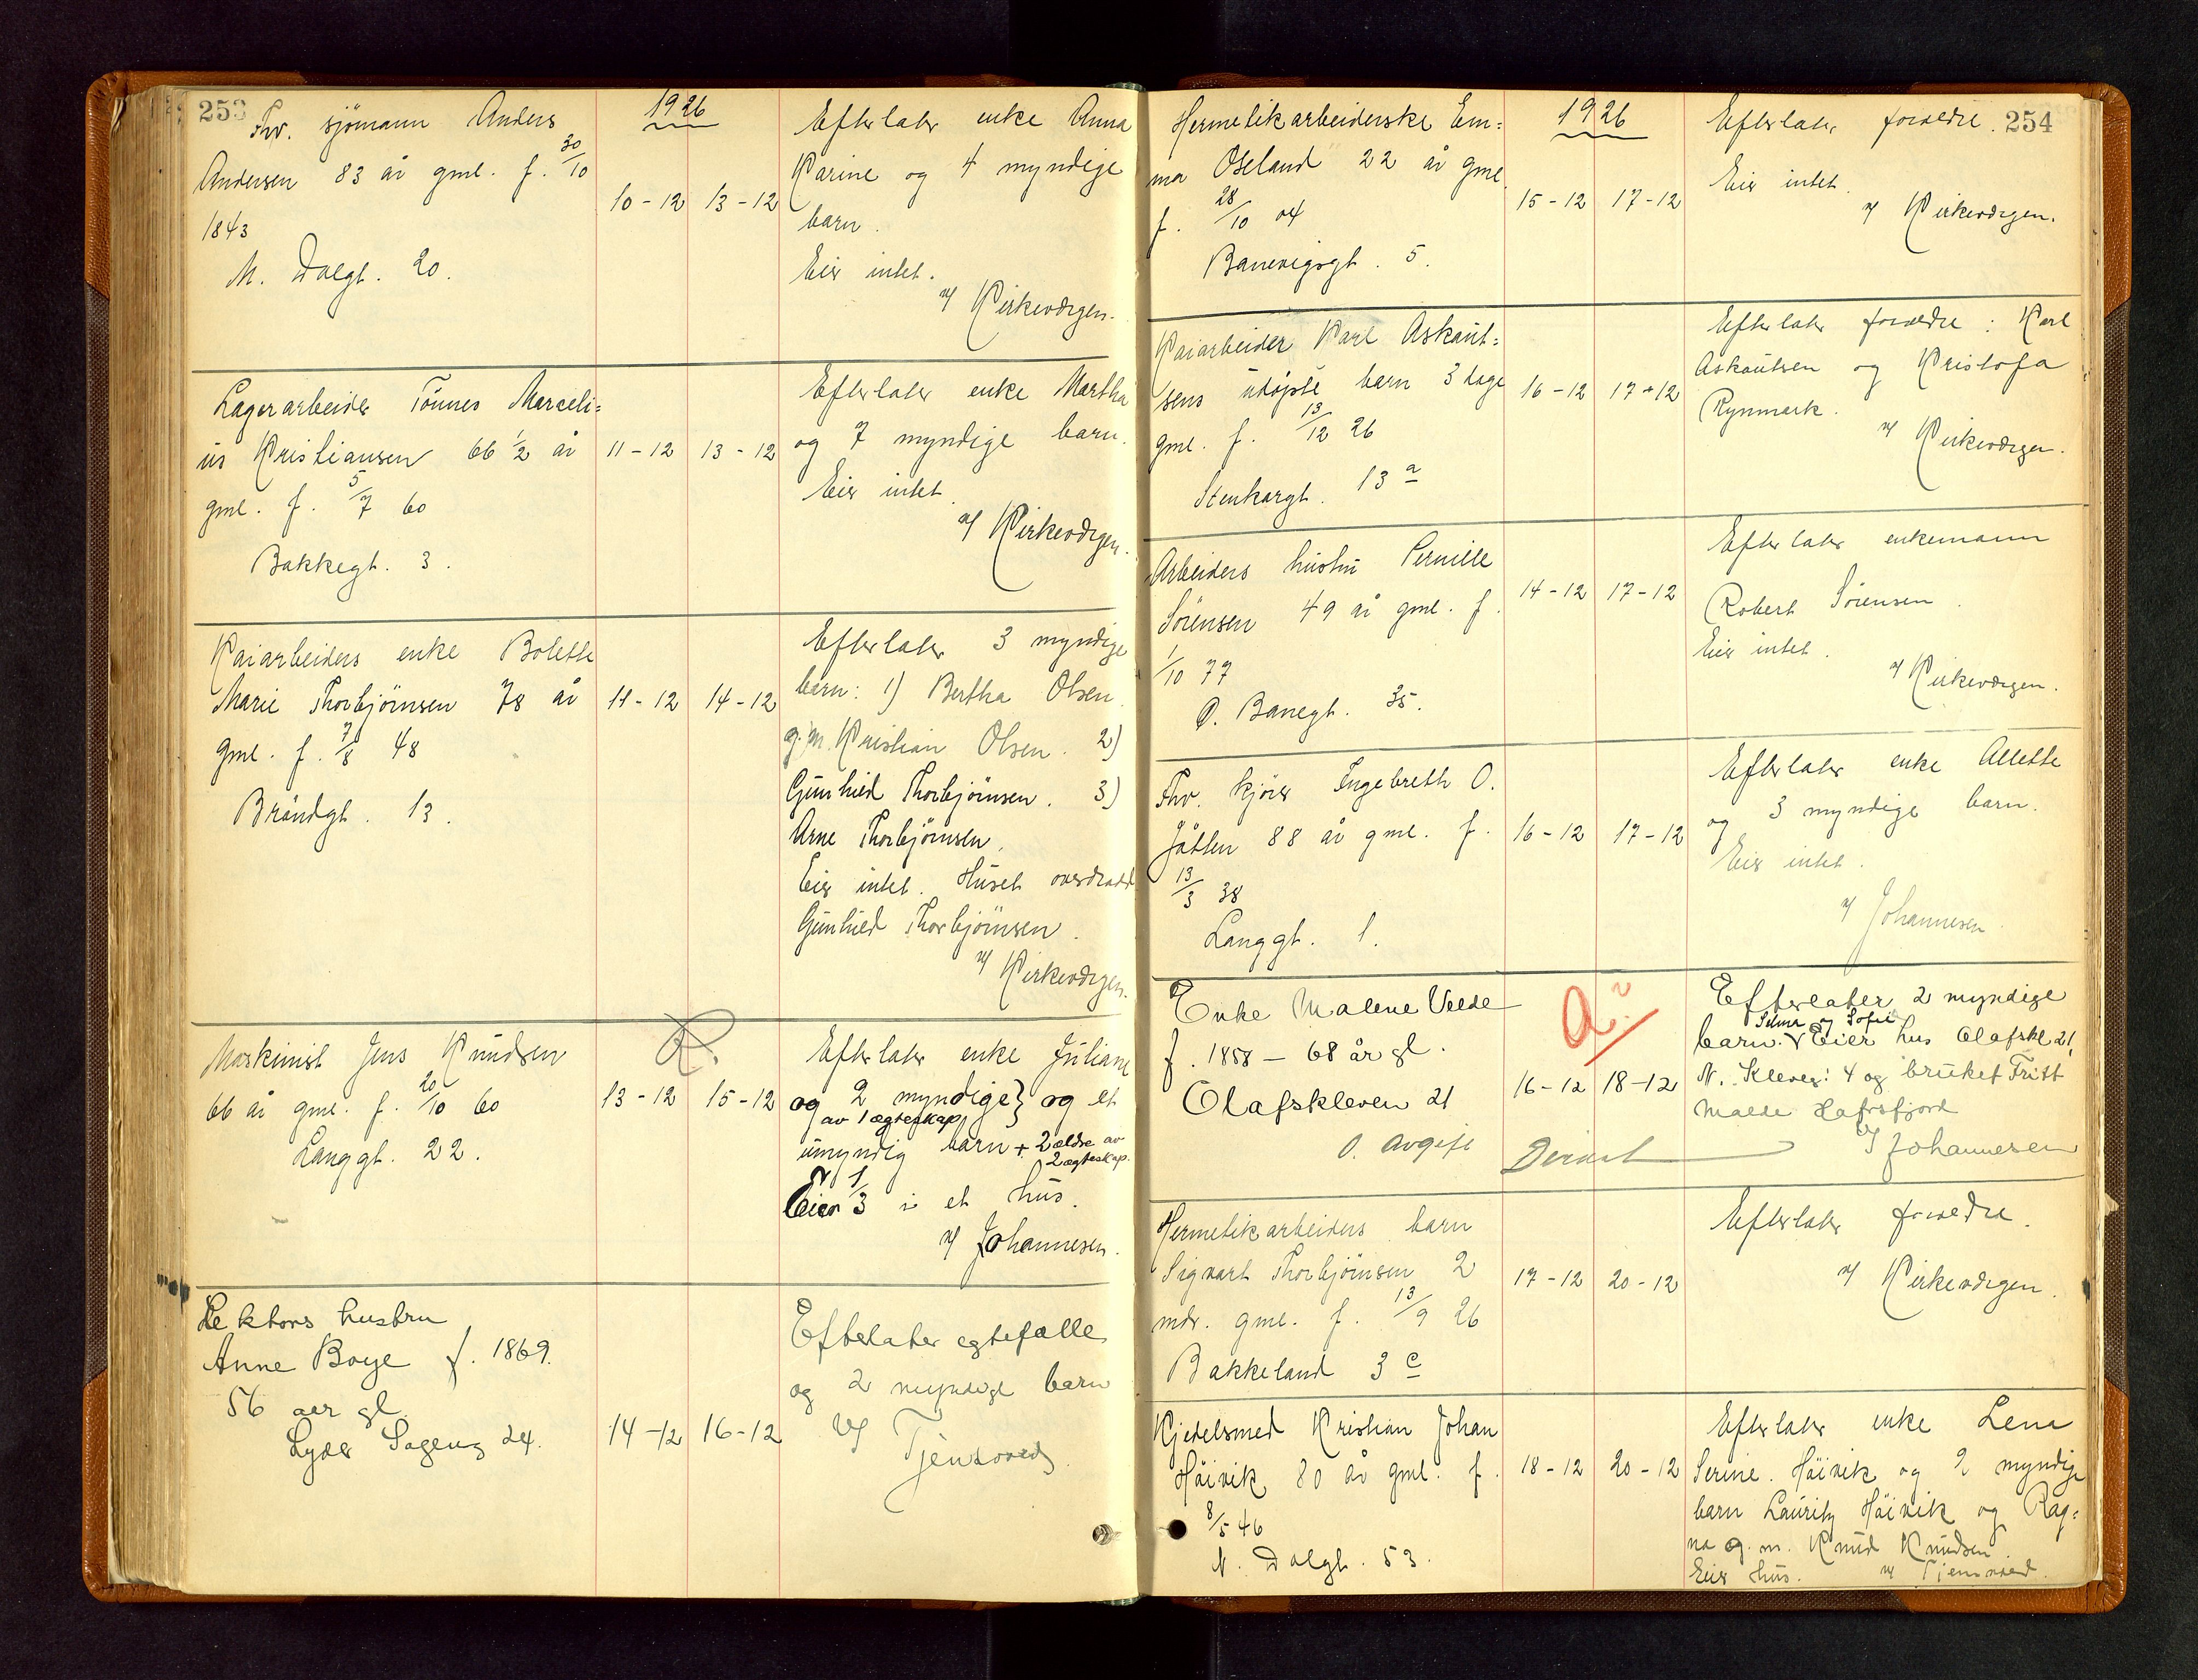 253
1926
Fhv. sjömann Anders
Andersen 83 år gml. f. 30/10
1843
N. Dalgt. 20.
10-12 13-12
Efterlater enke Anna
Karine og 4 myndige
barn.
Eier intet.
v/ Kirkevergen.
Lagerarbeider Tönnes Marceli=
us Kristiansen 66 1/2 år
gml. f. 5/7 60
Bakkegt. 3.
11-12 13-12
Efterlater enke Martha
og 7 myndige barn.
Eier intet.
v/ Kirkevergen.
Kaiarbeiders enke Bolette
Marie Thorbjörnsen 78 år
gml. f. 7/8 48
Bröndgt. 13.
11-12 14-12
Efterlater 3 myndige
barn: 1) Bertha Olsen
g.m. Kristian Olsen. 2)
Gunhild Thorbjörnsen. 3)
Arne Thorbjörnsen.
Eier intet. Huset overdradd
Gunhild Thorbjörnsen.
v/ Kirkevergen.
Maskinist Jens Knudsen
66 år gml. f. 20/10 60
Langgt. 22.
R.
13-12 15-12
Efterlater enke Juliane
og 2 myndige} og et
av 1 ægteskap
umyndig barn + 2 ældre av
2 ægteskap.
Eier 1/3 i et hus.
v/ Johannesen.
Lektors hustru
Anne Boye f. 1869.
56 aar gl
Lyder Sagens 24.
14-12 16-12
Efterlater egtefælle
og 2 myndige barn
v/ Tjensvold
254
1926
Hermetikarbeiderske Em=
ma Oseland 22 år gml.
f. 28/10 04
Banevigsgt. 5.
15-12 17-12
Efterlater foreldre.
Eier intet.
v/ Kirkevergen.
Kaiarbeider Karl Askaut=
sens udöpte barn 3 dage
gml. f. 13/12 26
Stenkargt. 13 a
16-12 17-12
Efterlater foreldre: Karl
Askautsen og Kristofa
Rynmark.
v/ Kirkevergen.
Arbeiders hustru Pernille
Sörensen 49 år gml. f.
1/10 77
O. Banegt. 35.
14-12 17-12
Efterlater enkemann
Robert Sörensen.
Eier intet.
v/ Kirkevergen.
Fhv. kjörer Ingebreth O.
Jåtten 88 år gml. f.
13/3 38
Langgt. 1.
16-12 17-12
Efterlater enke Allette
og 3 myndige barn.
Eier intet.
v/ Johannesen
Enke Malene Velde
f. 1858 - 68 år gl.
Olafskleven 21
16-12 18-12
Efterlater 2 myndige
Selma og Sofie
barn. Eier hus Olafskl 21,
N. Kleveg: 4 og bruket Fritt
Malde Hafrsfjord
v/ Johannesen
O. avgift
Hermetikarbeiders barn
Sigvart Thorbjörnsen 2
mdr. gml. f. 13/9 26
Bakkeland 3 c
17-12 20-12
Efterlater foreldre.
v/ Kirkevergen.
Kjedelsmed Kristian Johan
Höivik 80 år gml. f.
8/5 46
N. Dalgt. 53.
18-12 20-12
Efterlater enke Lena
Serine Höivik og 2 myndige
barn Lauritz Höivik og Rag=
na g.m. Knud Knudsen.
Eier hus. v/ Tjensvold.